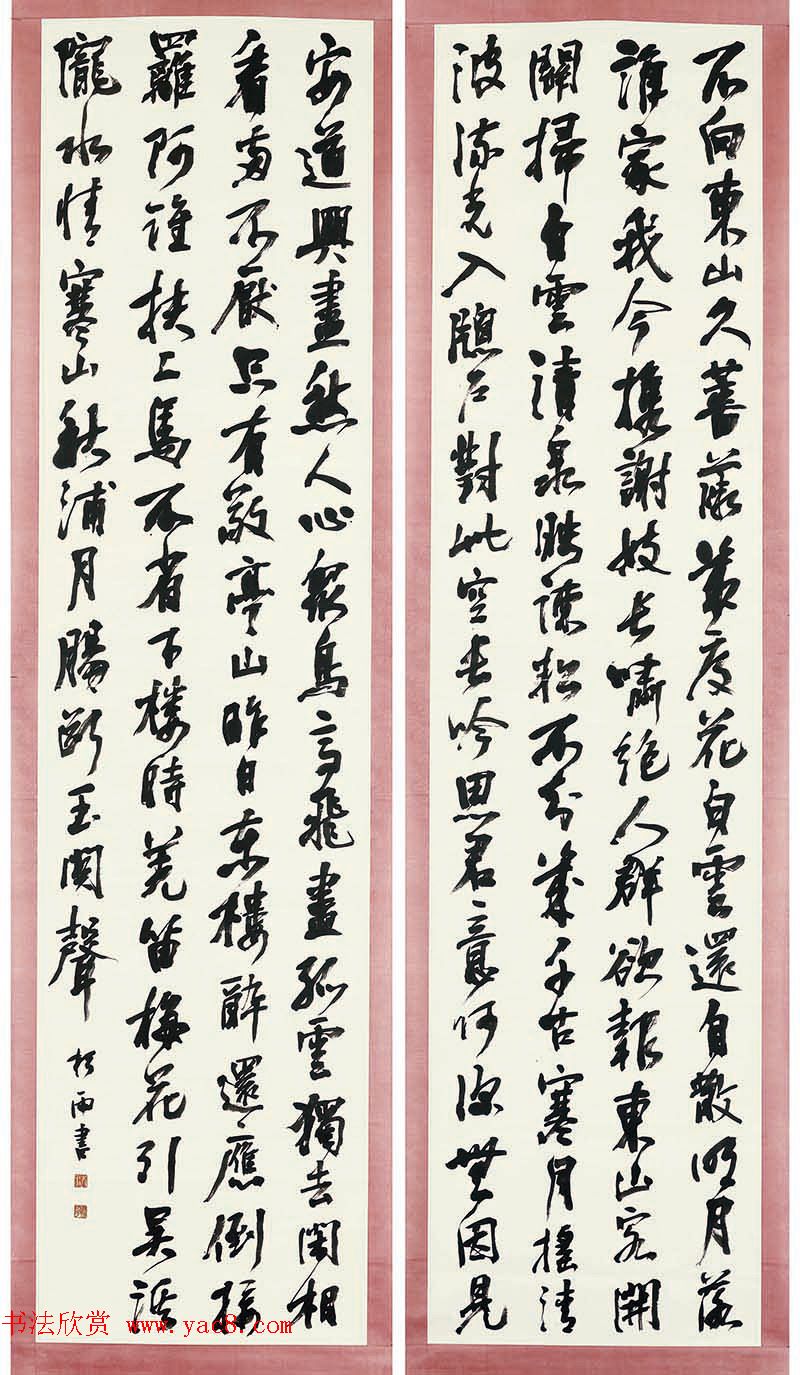 不向東山久薔薇幾度花白雲還自散明月落
誰家我今攜謝妓長嘯絕人群欲報東山客開
關掃白雲清泉映疎松不知幾千古寒月搖清
波流光入牕户對此空長吟思君意何深無因見
安道興盡愁人心眾鳥高飛盡孤雲獨去閑相
看兩不厭只有敬亭山昨日東樓醉還應倒接
羅阿誰扶上馬不省下樓時羌笛梅花引吳溪
隴水情寒山秋浦月腸斷玉關聲
松雨書
书法欣赏 www.yac8.com